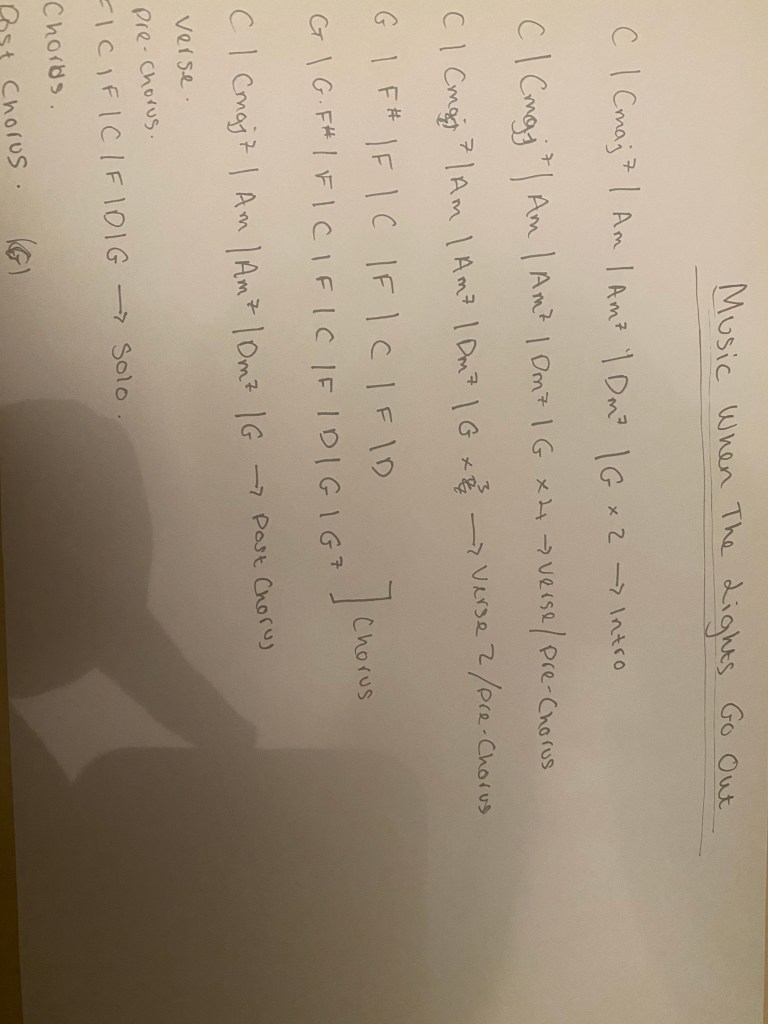 Music When The Lights Go Out
C | Cmaj7 | Am | Am7 | Dm7 | G x 2 → Intro
C | Cmaj7 | Am | Am7 | Dm7 | G x 4 → Verse/Pre-Chorus
C | Cmaj7 | Am | Am7 | Dm7 | G x 3 → Verse 2/Pre-Chorus
G | F# | F | C | F | C | F | D
G | G.F# | F | C | F | C | F | D | G | G7 ] Chorus
C | Cmaj7 | Am | Am7 | Dm7 | G → Post Chorus
Verse.
Pre-Chorus.
F | C | F | C | F | D | G → Solo.
Chorus.
Post Chorus. (G)